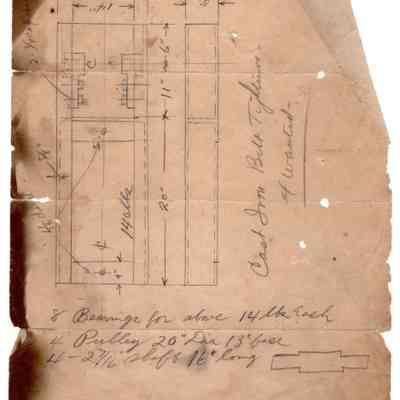 14"
5
6"
11"
20"
C
6
4"
14 lbs
Cast Iron Belt Tightener
4 Wanted
8 Bearings for above 14 lbs Each
4 Pulley 20" Dia 13" face
4 - 2 7/16" shaft 16" long